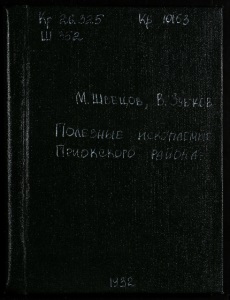 Кр 26.325 Кр 10163
Ш 352
М. Швецов, В. Зубков
Полезные ископаемые
Приокского района.
1932